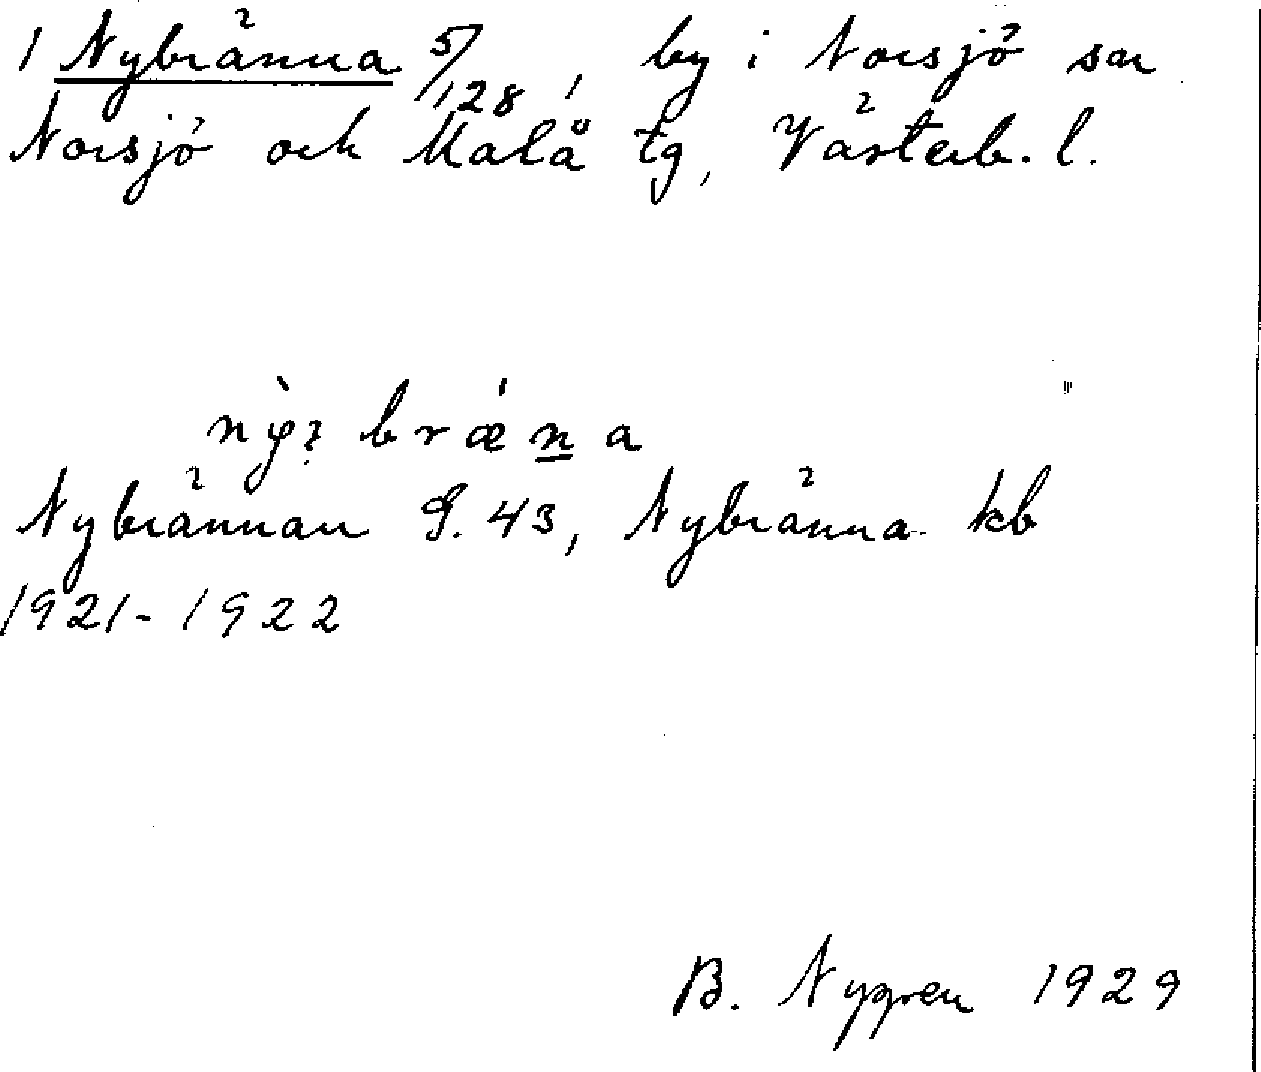 1 Nybränna 5/128, by i Norsjö sn
Norsjö och Malå tg, Västerb. l.
nỳ: brǽna
Nybrännan G. 43, Nybränna kb
1921-1922
B. Nygren 1929